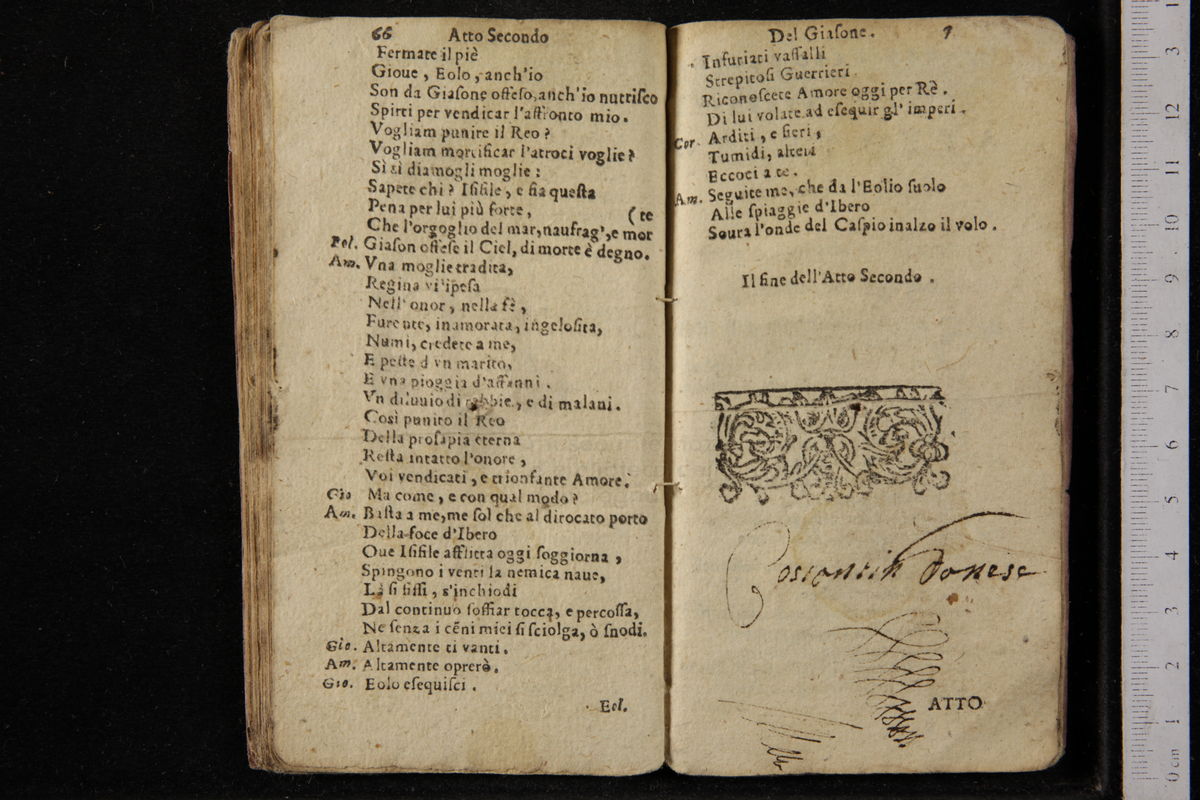 66 Atto Secondo
Fermate il piè
Gioue, Eolo, anch'io
Son da Giaſone offeſo, anch'io nutriſco
Spirti per vendicar l'affronto mio.
Vogliam punire il Reo?
Vogliam mortificar l'atroci voglie?
Sì sì diamogli moglie:
Sapete chi? Iſifile, e ſia queſta
Pena per lui più forte, (te
Che l'orgoglio del mar, naufrag', e mor
Eol. Giaſon offeſe il Ciel, di morte è degno.
Am. Vna moglie tradita,
Regina vilipeſa
Nell'onor, nella fè,
Furente, inamorata, ingeloſita,
Numi, credete a me,
E peſte d'vn marito,
E vna pioggia d'affanni.
Vn diluuio di rabbie, e di malani.
Così punito il Reo
Della proſapia eterna
Reſta intatto l'onore,
Voi vendicati, e trionfante Amore.
Gio Ma come, e con qual modo?
Am. Baſta a me, me ſol che al dirocato porto
Della foce d'Ibero
Oue Iſifile afflitta oggi ſoggiorna,
Spingono i venti la nemica naue,
Là ſi fiſſi, s'inchiodi
Dal continuo ſoffiar tocca, e percoſſa,
Ne ſenza i cēni miei ſi ſciolga, ò ſnodi.
Gio. Altamente ti vanti.
Am. Altamente oprerò.
Gio. Eolo eſequiſci.
Eol.
Del Giaſone.
Infuriati vaſſalli
Strepitoſi Guerrieri
Riconoſcete Amore oggi per Rè.
Di lui volate ad eſequir gl'imperi.
Cor. Arditi, e fieri,
Tumidi, alteri
Eccoci a te.
Am. Seguite me, che da l'Eolio ſuolo
Alle ſpiaggie d'Ibero
Soura l'onde del Caſpio inalzo il volo.
Il fine dell'Atto Secondo.
Donese
ATTO